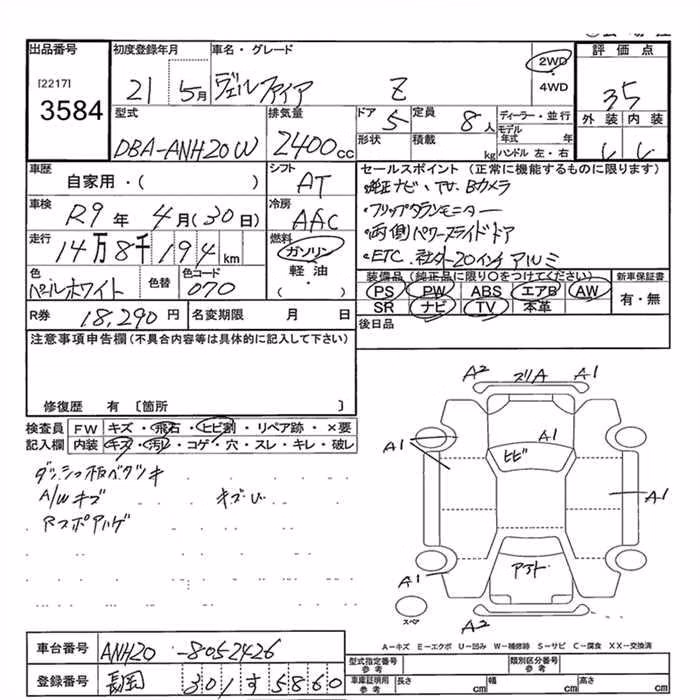 出品番号 初度登録年月 車名・グレード 評価点
[2217]
3584
21 5月 ヴェルファイア Z 2WD・4WD 35
型式 排気量 ドア 定員 ディーラー・並行 外装 内装
DBA-ANH20W 2400cc 5 8人 モデル年式 年
形状 積載 kg ハンドル 左・右
車歴 シフト セールスポイント(正常に機能するものに限ります)
自家用・( ) AT ・純正ナビ、TV、Bカメラ
車検 冷房 ・フリップダウンモニター
R9年4月(30日) AAC ・両側パワースライドドア
走行 燃料 ・ETC、社外20インチアルミ
14万8千194km ガソリン
軽油
・( )
色 色替 色コード 装備品(純正品に限り○をつけてください) 新車保証書
パールホワイト 070 PS PW ABS エアB AW 有・無
SR ナビ TV 本革
R券 18,290円 名変期限 月 日 後日品
注意事項申告欄(不具合内容等は具体的に記入して下さい)
修復歴 有 〔箇所 〕
検査員 FW キズ・飛石・ヒビ割・リペア跡・×要
記入欄 内装 キズ・汚レ・コゲ・穴・スレ・キレ・破レ
ダッシュ板ベタツキ
A/Wキズ
RスポAハゲ
A2 ズリA A1
A1 A1
ヒビ
A1
A1
A2
スペア
A-キズ E-エクボ U-凹み W-補修跡 S-サビ C-腐食 XX-交換済
車台番号 ANH20-8052426
登録番号 長岡 301す5860
型式指定番号 参考 類別区分番号 参考
車庫証明用 参考 長さ cm 幅 cm 高さ cm